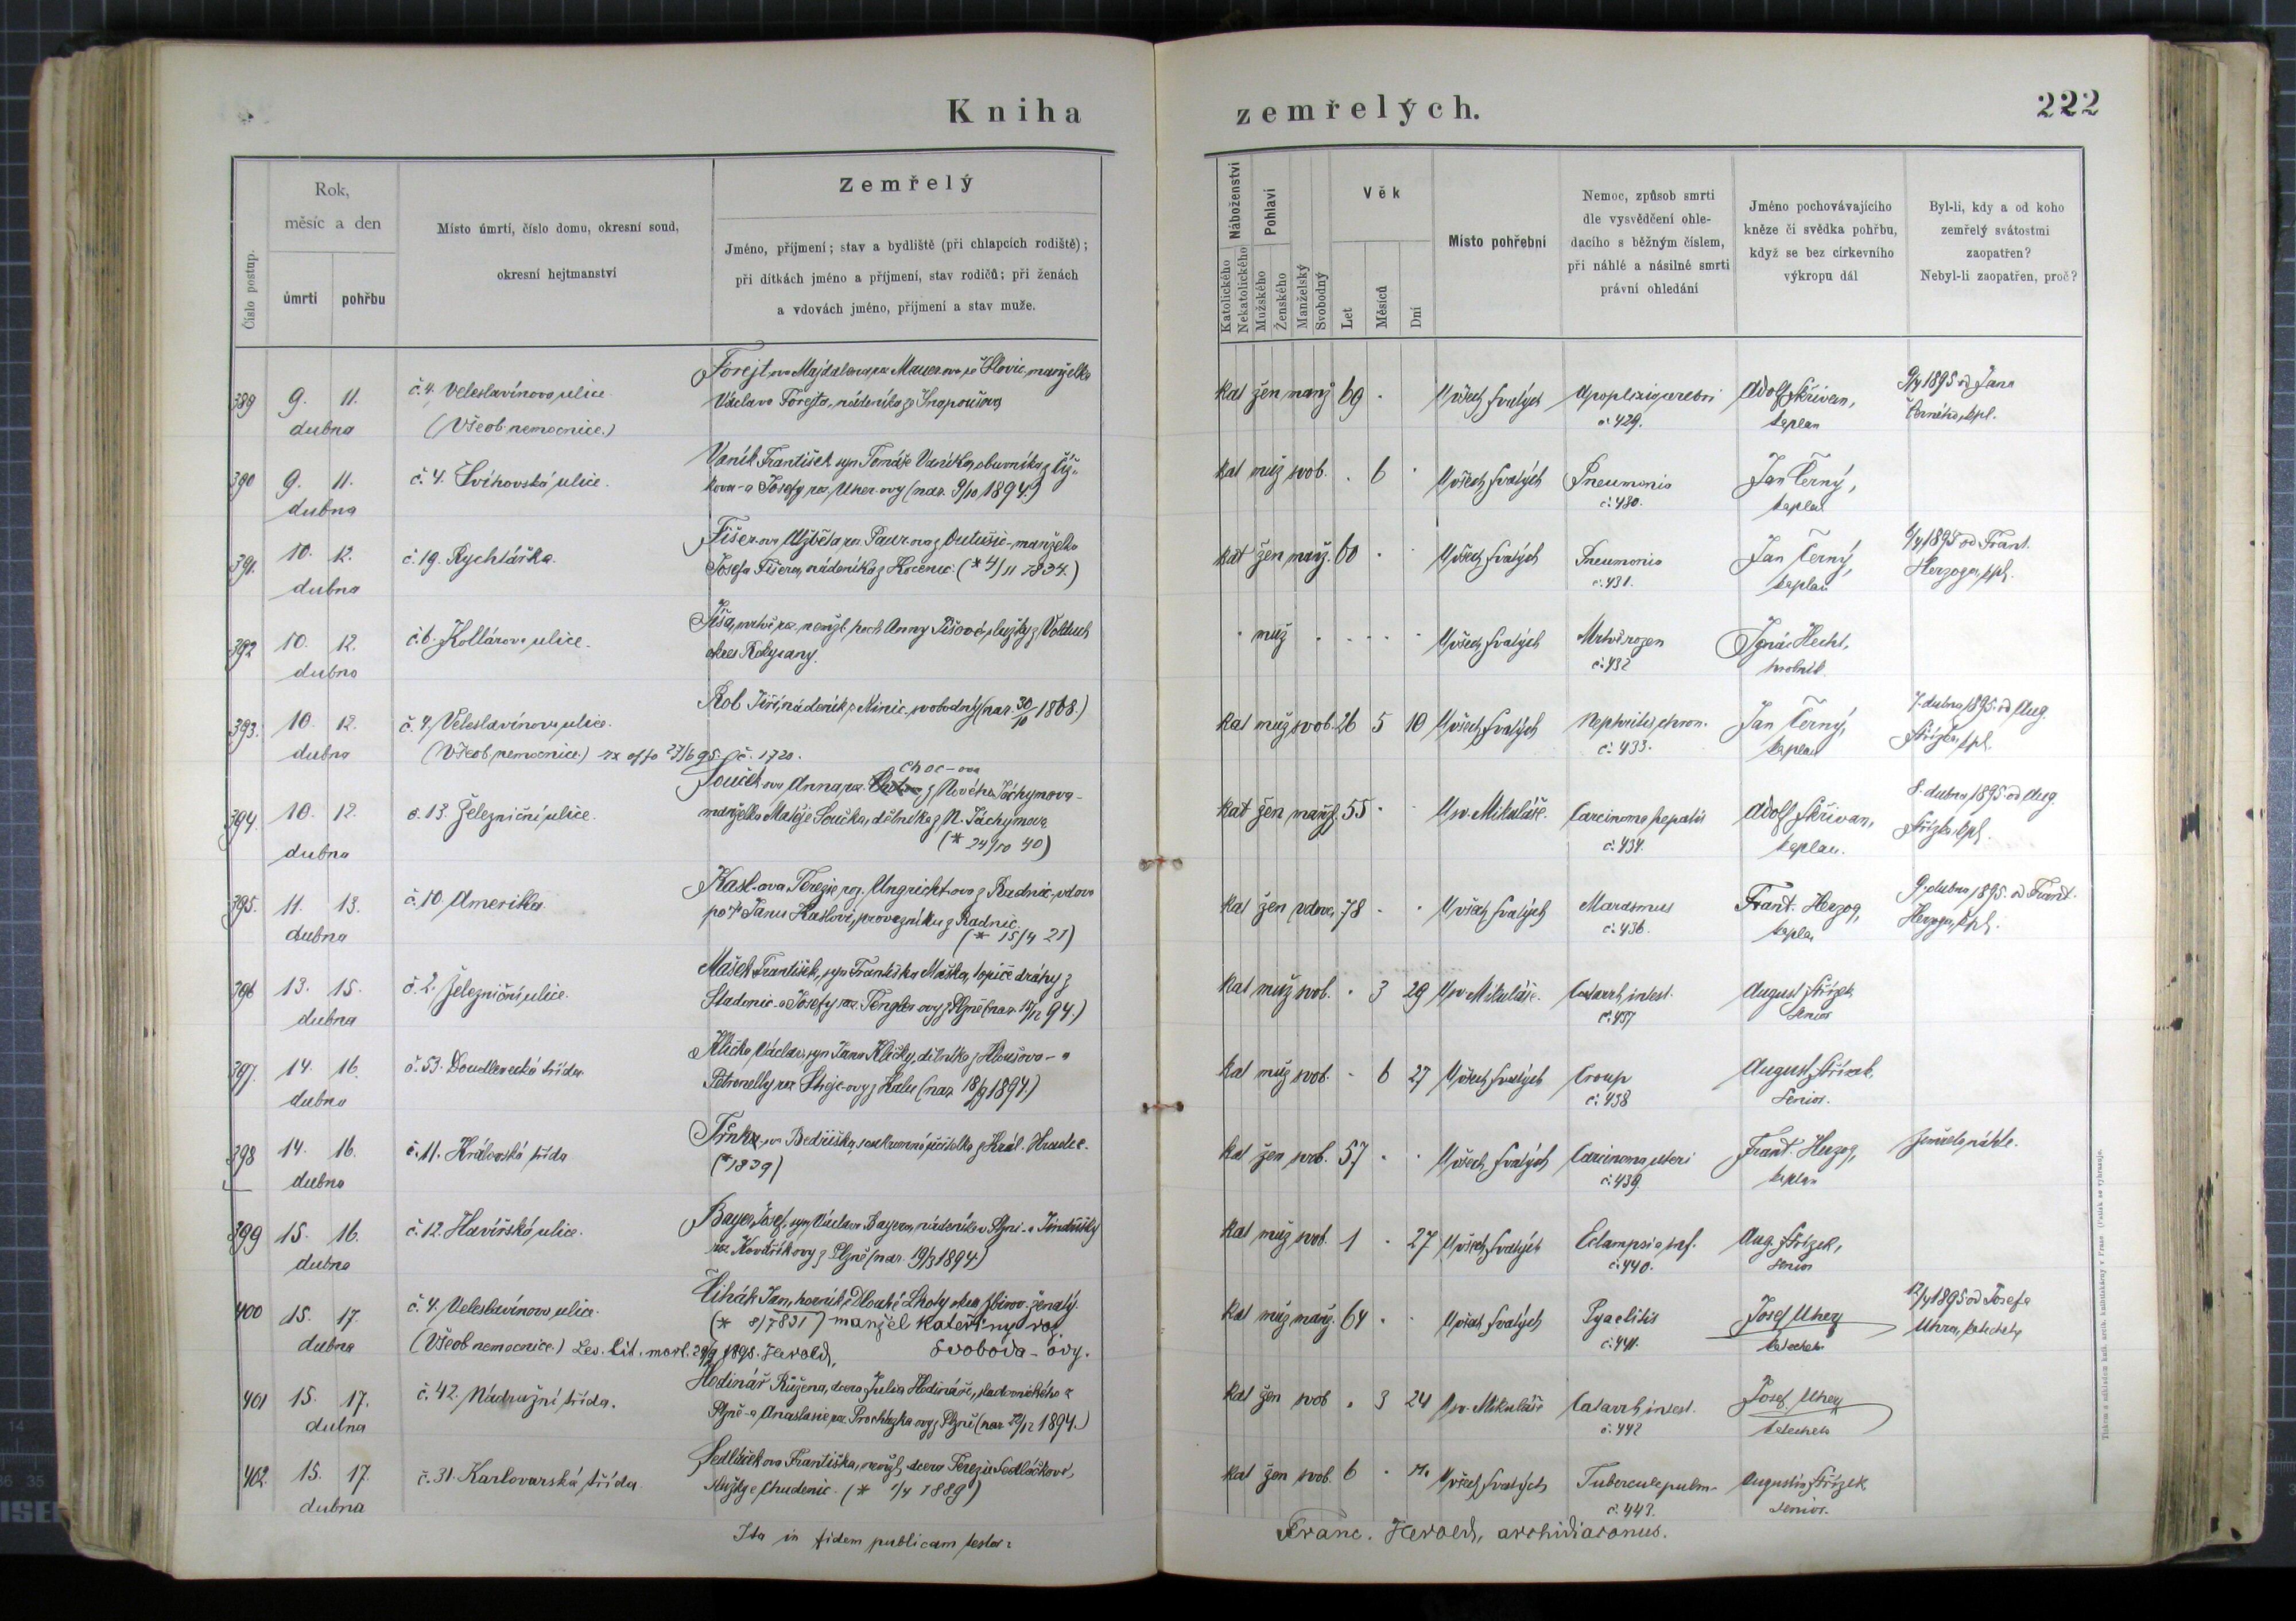 Kniha zemřelých.
222
Číslo postup.
Rok,
měsíc a den
úmrtí
pohřbu
Místo úmrtí, číslo domu, okresní soud,
okresní hejtmanství
Zemřelý
Jméno, příjmení; stav a bydliště (při chlapcích rodiště);
při dítkách jméno a příjmení, stav rodičů; při ženách
a vdovách jméno, příjmení a stav muže.
Náboženství
Katolického
Nekatolického
Pohlaví
Mužského
Ženského
Manželský
Svobodný
Věk
Let
Měsíců
Dní
Místo pohřební
Nemoc, způsob smrti
dle vysvědčení ohle-
dacího s běžným číslem,
při náhlé a násilné smrti
právní ohledání
Jméno pochovávajícího
kněze či svědka pohřbu,
když se bez církevního
výkropu dál
Byl-li, kdy a od koho
zemřelý svátostmi
zaopatřen?
Nebyl-li zaopatřen, proč?
389 9. 11. dubna
č. 4. Veleslavínova ulice
(Všeob. nemocnice.)
Forejt-ova Majdalena, roz. Mauer-ova manželka
Václava Forejta, nádeníka z
kat žen manž 69 . U všech svatých
č. 429.
Adolf Skřivan,
kaplan
9/4 1895 od Jana
Černého, kpl.
390 9. 11. dubna
č. 4. Švihovská ulice.
Vaník František syn Tomáše Vaníka, obuvníka z
a Josefy roz. Uher-ovy (nar. 9/10 1894.)
kat muž svob. . 6 . U všech svatých
Pneumonia
č. 430.
Jan Černý,
kaplan
391. 10. 12. dubna
č. 19. Rychtářka.
Fišer-ova Alžběta roz. Paur-ova manželka
Josefa Fišera, nádeníka z (* 4/11 1834.)
kat žen manž. 60 . . U všech svatých
Pneumonia
č. 431.
Jan Černý,
kaplan
6/4 1895 od Frant.
Herzoga, kpl.
392 10. 12. dubna
č. 6. Kollárova ulice.
mrtvě roz. nemžl. hoch Anny služky z
okres Rokycany.
. muž . . . . . U všech svatých
Mrtvěrozen
č. 432
Ignác Hecht,
hrobník.
393. 10. 12. dubna
č. 4. Veleslavínova ulice.
(Všeob. nemocnice) ex offo 27/6 95. č. 1720.
Rob Jiří, nádeník z svobodný (nar. 30/10 1868.)
kat muž svob. 26 5 10 U všech svatých
Nephritis chron.
č. 433.
Jan Černý,
kaplan
7. dubna 1895. od Aug.
Střízka, kpl.
394. 10. 12. dubna
č. 13. Železniční ulice.
Choc-ova
Souček-ova Anna, roz. z Nového Jáchymova -
manželka Matěje Součka, dělníka z N. Jáchymova
(* 24/10 40)
kat žen manž. 55 . . U sv. Mikuláše.
Carcinoma hepatis
č. 434.
Adolf Skřivan,
kaplan.
8. dubna 1895. od Aug.
Střízka, kpl.
395. 11. 13. dubna
č. 10. Amerika
Kasl-ova Terezie, roz. Ungricht-ova z Radnic, vdova
po † Janu Kaslovi, provazníku z Radnic.
(* 15/4 21)
kat žen vdova, 78 . . U všech svatých
Marasmus
č. 436.
Frant. Herzog,
kaplan
9. dubna 1895. od Frant.
Herzoga, kpl.
396 13. 15. dubna
č. 2. Železniční ulice.
Mašek František, syn Františka Maška, topiče dráhy z
a Josefy roz. Tengler-ovy z Plzně (nar. 15/12 94.)
kat muž svob. . 3 29 U sv. Mikuláše.
Catarrh. intest.
č. 437
August Střízek
senior
397. 14. 16. dubna
č. 53. Doudlevecká třída
Klička, Václav, syn Jana Kličky, dělníka z a
Petronelly roz. (nar. 18/9 1894.)
kat muž svob. . 6 27 U všech svatých
Croup
č. 438
August. Střízek,
senior.
398 14. 16. dubna
č. 11. Královská třída
Trnka-ova Bedřiška, soukromá učitelka z Král. Hradce.
(* 1839)
kat žen svob. 57 . . U všech svatých
Carcinoma uteri
č. 439.
Frant. Herzog,
kaplan
zemřela náhle.
399 15. 16. dubna
č. 12. Havířská ulice.
Bayer, Josef, syn Václava Bayera, nádeníka v Plzni - a Jindřišky
roz. Kovářík-ovy z Plzně (nar. 19/3 1894)
kat muž svob. 1 . 27 U všech svatých
Eclampsia inf.
č. 440.
Aug. Střízek,
senior
400 15. 17. dubna
č. 4. Veleslavínova ulice.
(Všeob. nemocnice.) Lev. lit. mort. 29/9 1898. Herold,
Čihák Jan, horník z Dlouhé Lhoty okres Zbirov, ženatý.
(* 8/7 831) manžel Kateřiny roz.
Svoboda-ovy.
kat muž manž. 64 . . U všech svatých
Pyaelitis
č. 441.
Josef Uher,
katecheta
12/4 1895 od Josefa
Uhra, katechety
401 15. 17. dubna
č. 42. Nádražní třída.
Hodinář Růžena, dcera Julia Hodináře, z
Plzně - a Anastasie roz. Procházka-ovy z Plzně (nar. 22/12 1894.)
kat žen svob . 3 24 U sv. Mikuláše
Catarrh. intest.
č. 442
Josef Uher
katecheta
402. 15. 17. dubna
č. 31. Karlovarská třída.
Sedláček-ova Františka, nemžl. dcera Terezie Sedláčkové,
služky z Chudenic. (* 1/4 1889)
kat žen svob. 6 . 14. U všech svatých
Tubercul. pulm.
č. 443.
Augustin Střízek
senior.
Ita in fidem publicam testor:
Franc. Herold, archidiaconus.